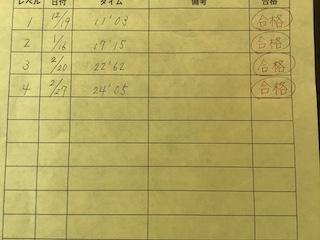 レベル 日付 タイム 備考 合格
1 12/19 11'03 合格
2 1/16 17'15 合格
3 2/20 22'62 合格
4 2/27 24'05 合格